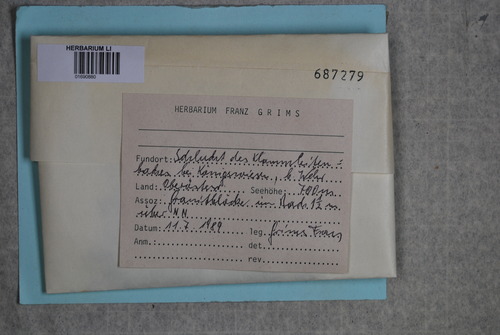 HERBARIUM LI
687279
HERBARIUM FRANZ GRIMS
Fundort: Schlucht des Klammleiten=
baches bei Königswiesen,
Land: Oberösterr. Seehöhe: 700 m
Assoz.: Granitblöcke im
über NN
Datum: 11.7.1989 leg. Grims Franz
Anm.: det.
rev.